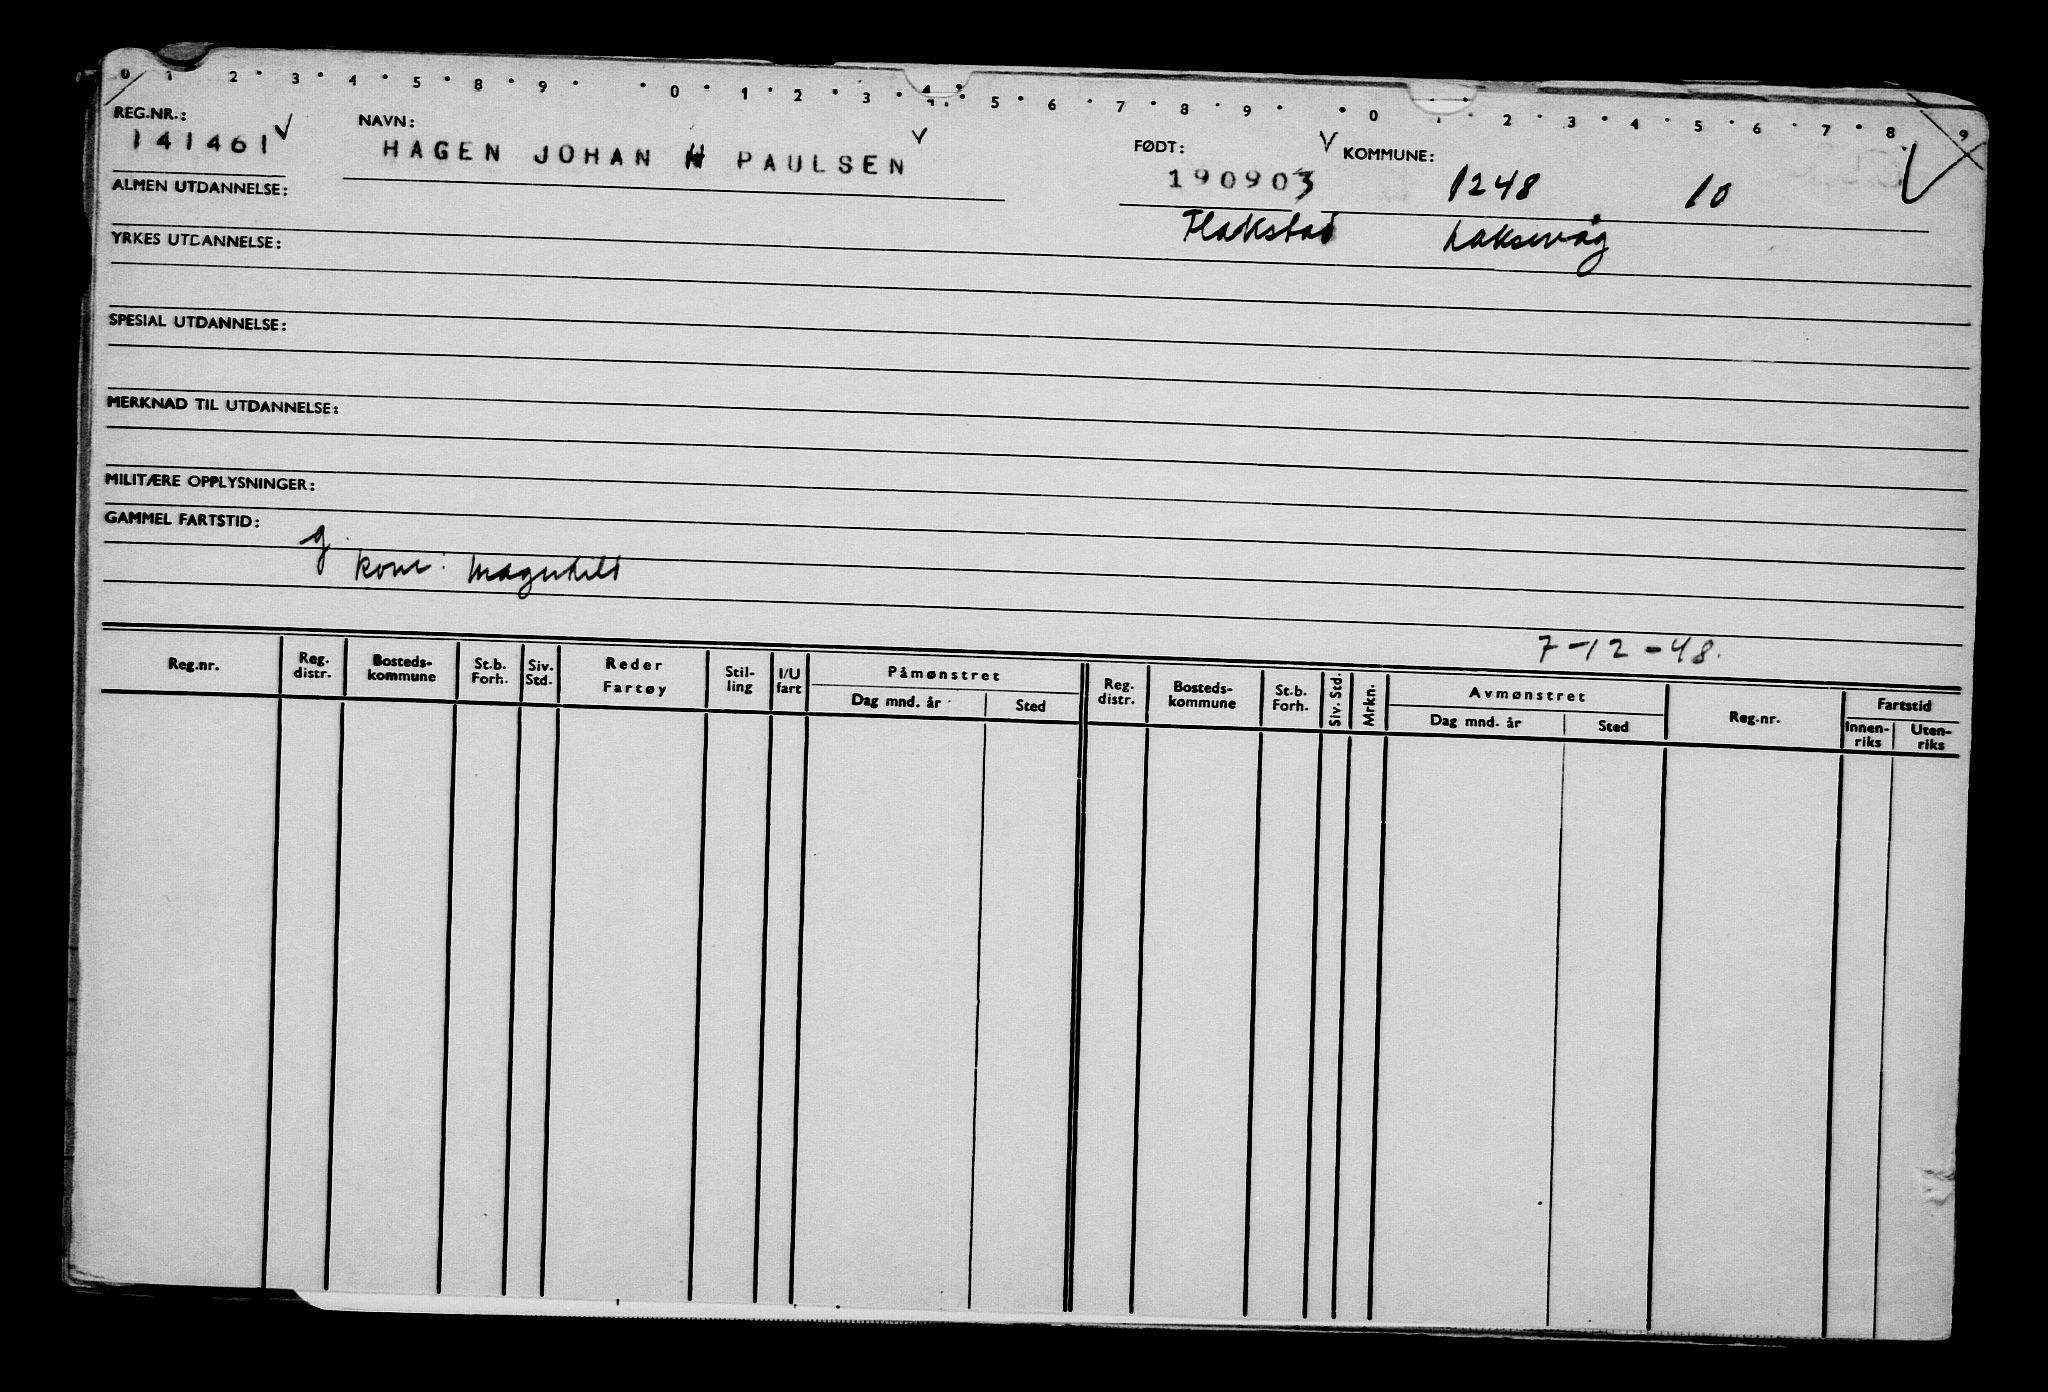 0 1 2 3 4 5 8 9 0 1 2 3 4 5 6 7 8 9 0 1 2 3 4 5 6 7 8 9
REG.NR.: NAVN: FØDT: KOMMUNE:
141461 HAGEN JOHAN H PAULSEN 190903 1248 10
ALMEN UTDANNELSE:
Flakstad Laksevåg
YRKES UTDANNELSE:
SPESIAL UTDANNELSE:
MERKNAD TIL UTDANNELSE:
MILITÆRE OPPLYSNINGER:
GAMMEL FARTSTID:
g.
kone: Magnhild
7-12-48.
Reg.nr. Reg. distr. Bosteds- kommune St.b. Forh. Siv. Std. Reder Fartøy Stil- ling I/U fart Påmønstret Reg. distr. Bosteds- kommune St.b. Forh. Siv. Std. Mrkn. Avmønstret Reg.nr. Fartstid
Dag mnd. år Sted Dag mnd. år Sted Innen- riks Uten- riks